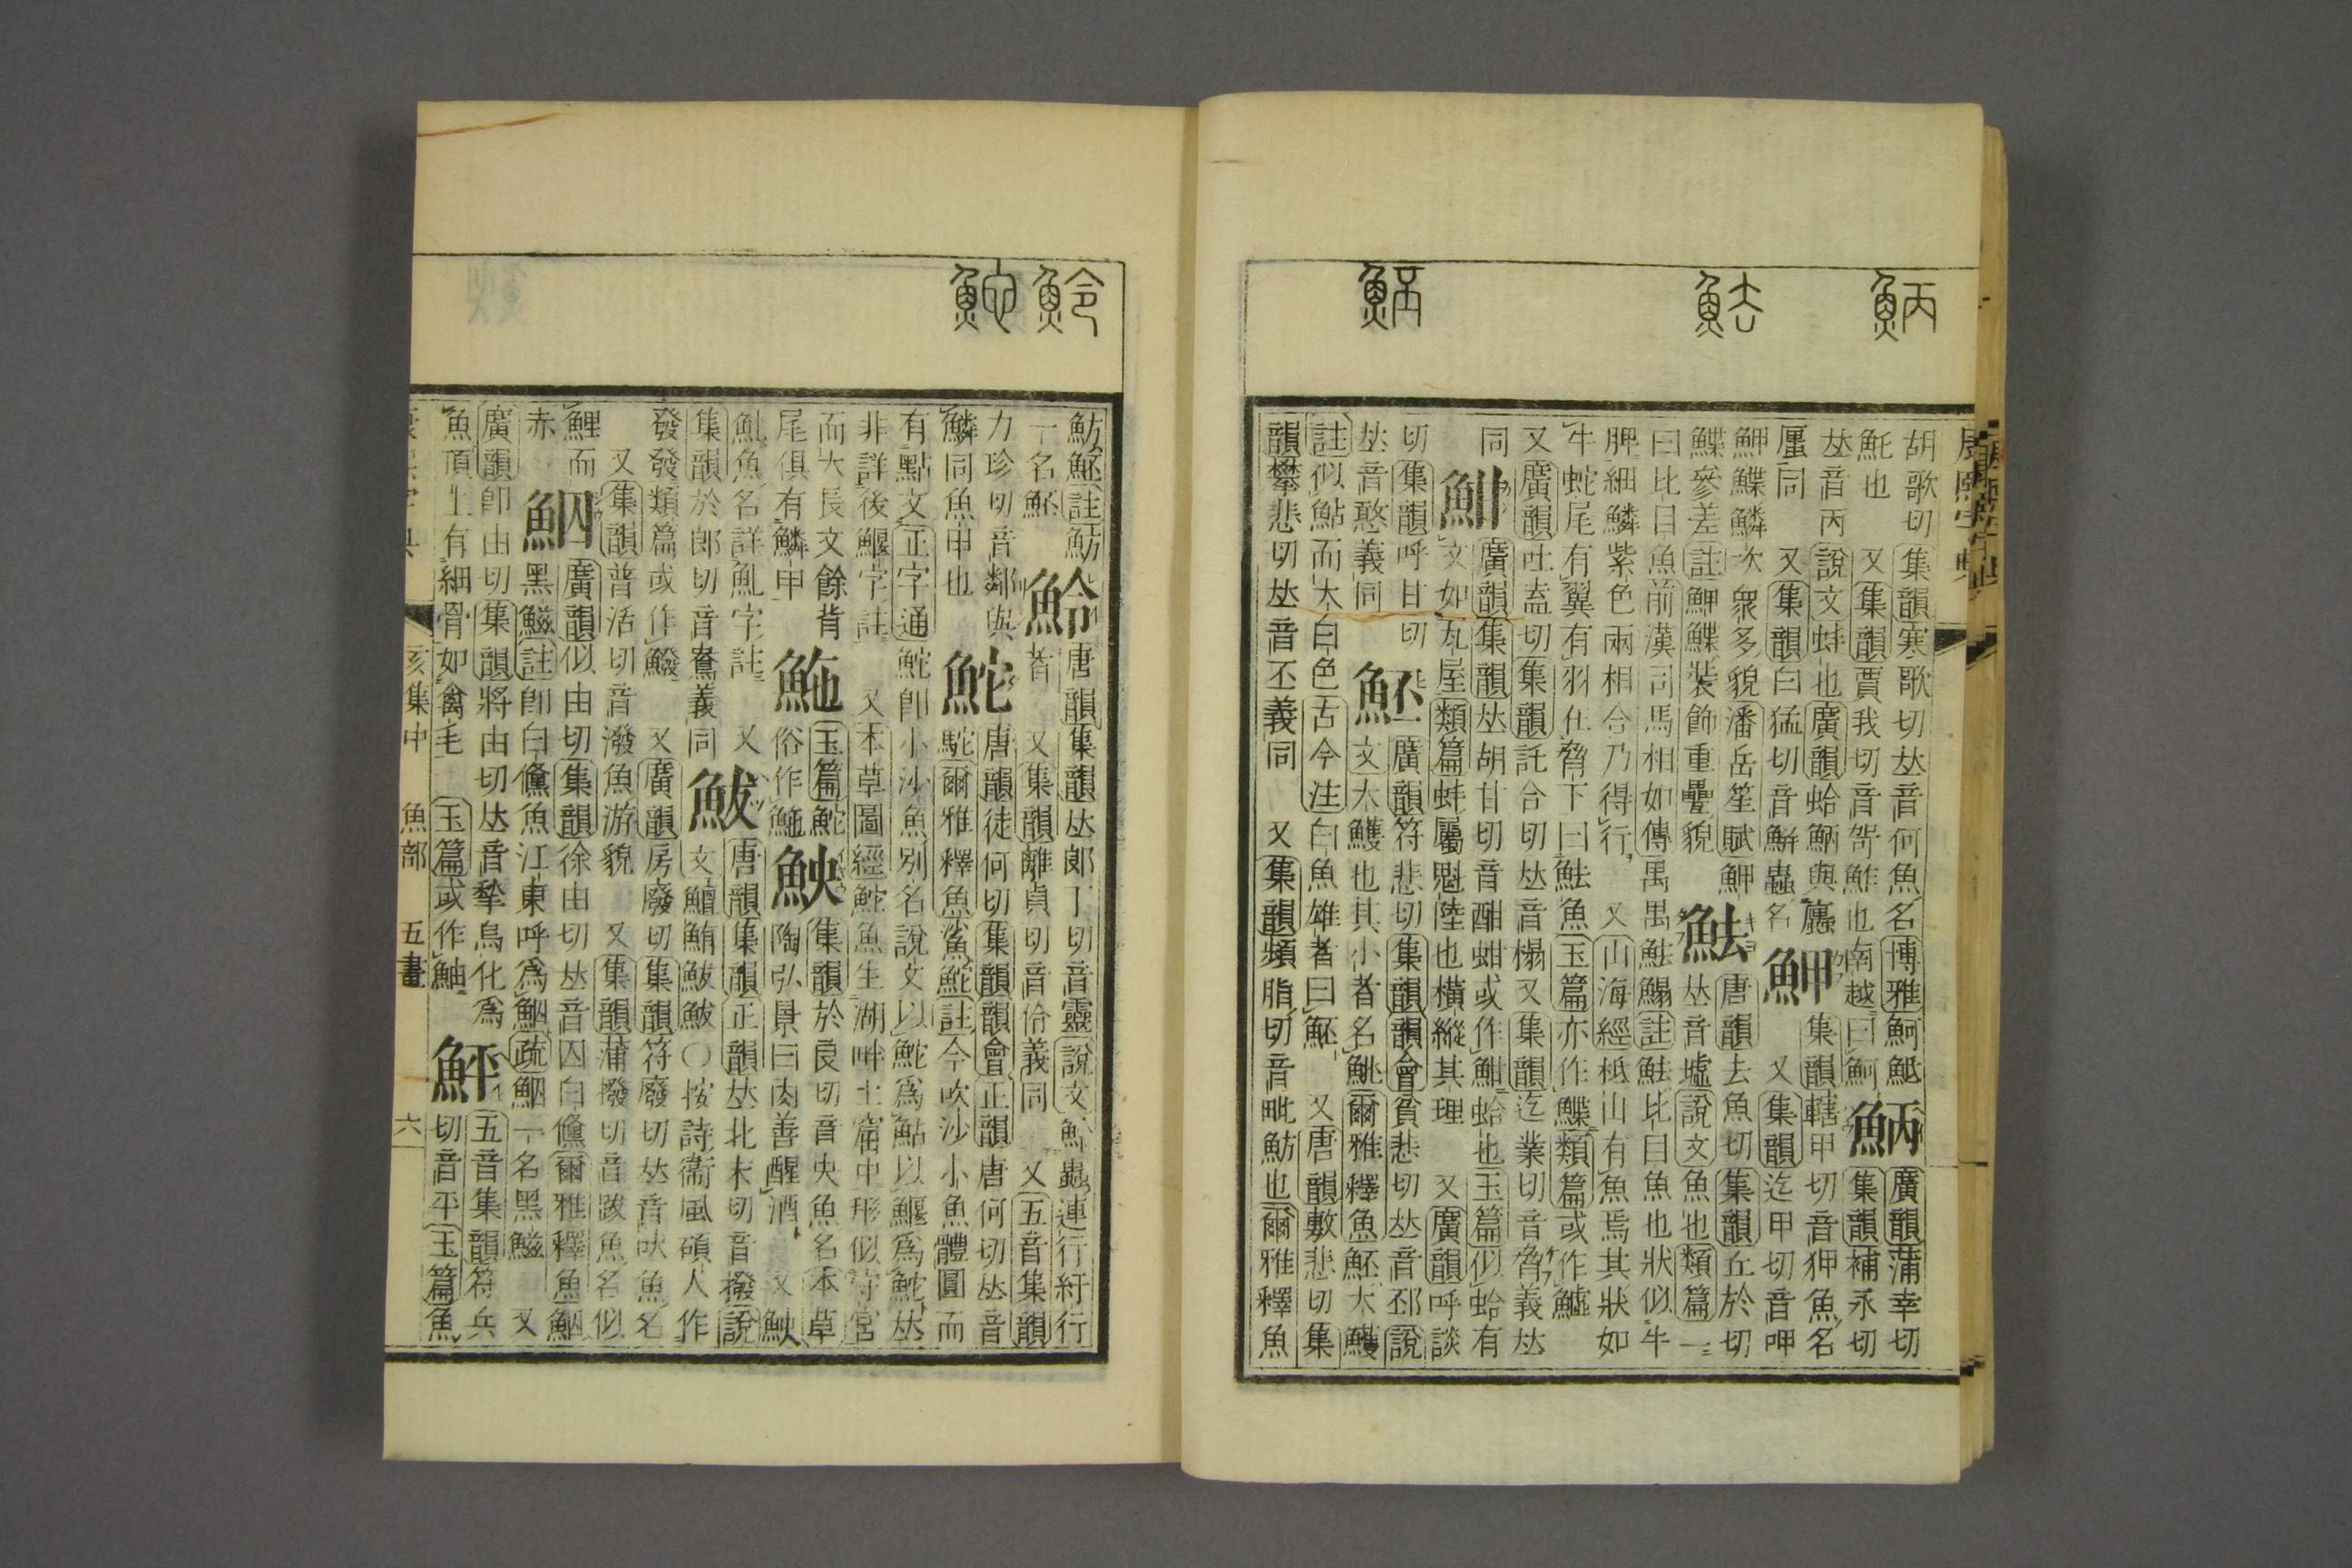 䱇
魼
魾
胡歌切集韻寒歌切𠀤音何魚名博雅魺魠
魠也 又集韻賈我切音哿鮓也南越曰魺
䱇
廣韻蒲幸切
集韻補永切
𠀤音丙說文蚌也廣韻蛤䱇與蠯
蠯同 又集韻白猛切音鮩蟲名
魻
集韻轄甲切音狎魚名
又集韻迄甲切音呷
魻鰈鱗次衆多貌潘岳笙賦魻
鰈參差註魻鰈裝飾重疊貌
魼
唐韻去魚切集韻丘於切
𠀤音墟說文魚也類篇一
曰比目魚前漢司馬相如傳禺禺魼鰨註魼比目魚也狀似牛
脾細鱗紫色兩相合乃得行 又山海經柢山有魚焉其狀如
牛蛇尾有翼有羽在脅下曰魼魚玉篇亦作鰈類篇或作鱋
又廣韻吐盍切集韻託合切𠀤音榻 又集韻迄業切音脅義𠀤
同
魽
廣韻集韻𠀤胡甘切音酣蚶或作魽蛤也玉篇似蛤有
文如瓦屋類篇蚌屬魁陸也橫縱其理 又廣韻呼談
切集韻呼甘切
𠀤音憨義同
魾
廣韻符悲切集韻韻會貧悲切𠀤音邳說
文大鱯也其小者名鮡爾雅釋魚魾大鱯
註似鮎而大白色古今注白魚雄者曰魾 又唐韻敷悲切集
韻攀悲切𠀤音丕義同 又集韻頻脂切音毗魴也爾雅釋魚
鮑
魿
魴魾註魴
一名魾
魿
唐韻集韻𠀤郞丁切音靈說文魿蟲連行紆行
者 又集韻離貞切音伶義同 又五音集韻
力珍切音鄰與
鱗同魚甲也
鮀
唐韻徒何切集韻韻會正韻唐何切𠀤音
駝爾雅釋魚鯊鮀註今吹沙小魚體圓而
有點文正字通鮀卽小沙魚別名說文以鮀爲鮎以鰋爲鮀𠀤
非詳後鰋字註 又本草圖經鮀魚生湖畔土窟中形似守宮
而大長丈餘背
尾俱有鱗甲
鮏
玉篇鮀
俗作
鉠
集韻於良切音央魚名本草
陶弘景曰肉善醒酒 又
魚名詳字註
集韻於郎切音鴦義同
鮁
唐韻集韻正韻𠀤北末切音撥說
文鱣鮪鮁鮁○按詩衞風碩人作
發發類篇或作鱍 又廣韻房廢切集韻符廢切𠀤音吠魚名
又集韻普活切音潑魚游貌 又集韻蒲撥切音跋魚名似
鯉而
赤
鮂
廣韻似由切集韻徐由切𠀤音囚白鯈爾雅釋魚鮂
黑鰦註卽白鯈魚江東呼爲鮂疏鮂一名黑鰦 又
廣韻卽由切集韻將由切𠀤音揫鳥化爲
魚頂上有細骨如禽毛 玉篇或作鮋
鮃
五音集韻符兵
切音平玉篇魚
亥集中 魚部 五畫
六